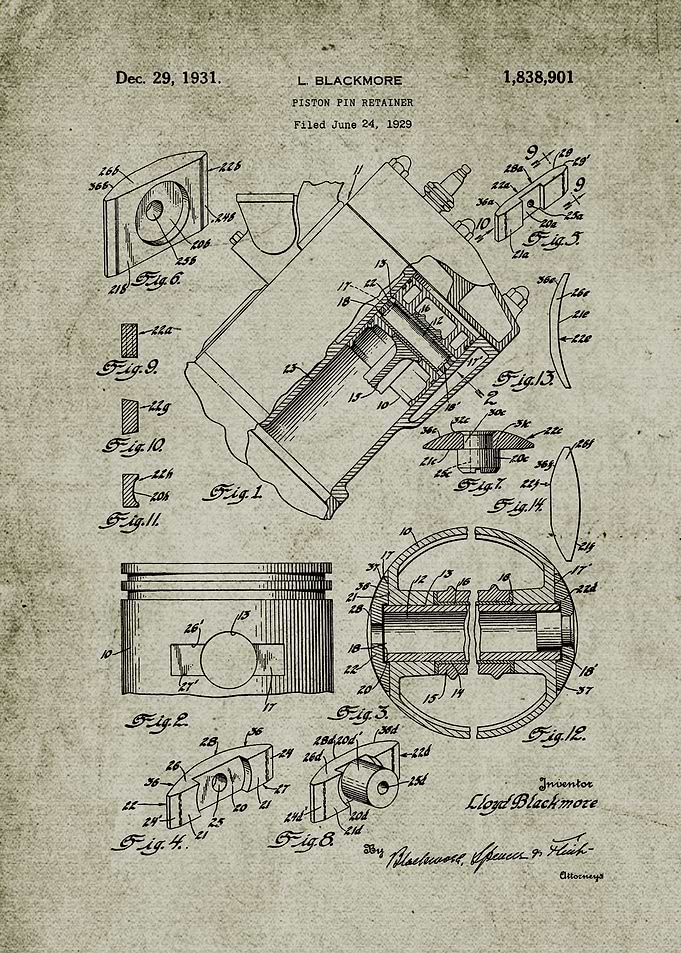 Dec. 29, 1931.
L. BLACKMORE
1,838,901
PISTON PIN RETAINER
Filed June 24, 1929
26b
36b
22b
24b
20b
25b
21b
Fig. 6.
11
9
29
29'
28a
22a
9
36a
10
25a
20a
21a
Fig. 5.
13
22
17
18
16
12
23
15
10
17'
18'
2
Fig. 1.
36e
26e
21e
22e
Fig. 13.
22a
Fig. 9.
22g
Fig. 10.
22h
20h
Fig. 11.
30c
32c
31c
36c
22c
21c
20c
25c
Fig. 7.
26f
36f
22f
21f
Fig. 14.
10
17
37
36
21
28
12
13
16
16
17'
22d
18
22
20
15
14
18'
37
Fig. 3.
Fig. 12.
26'
13
10
27'
17
Fig. 2.
28
36
26
24
36
27
22
24'
21
25
20
21
Fig. 4.
28d
20d'
36d
26d
22d
25d
24d'
20d
21d
Fig. 8.
Inventor
Lloyd Blackmore
By Blackmore, Spencer & Flint
Attorneys